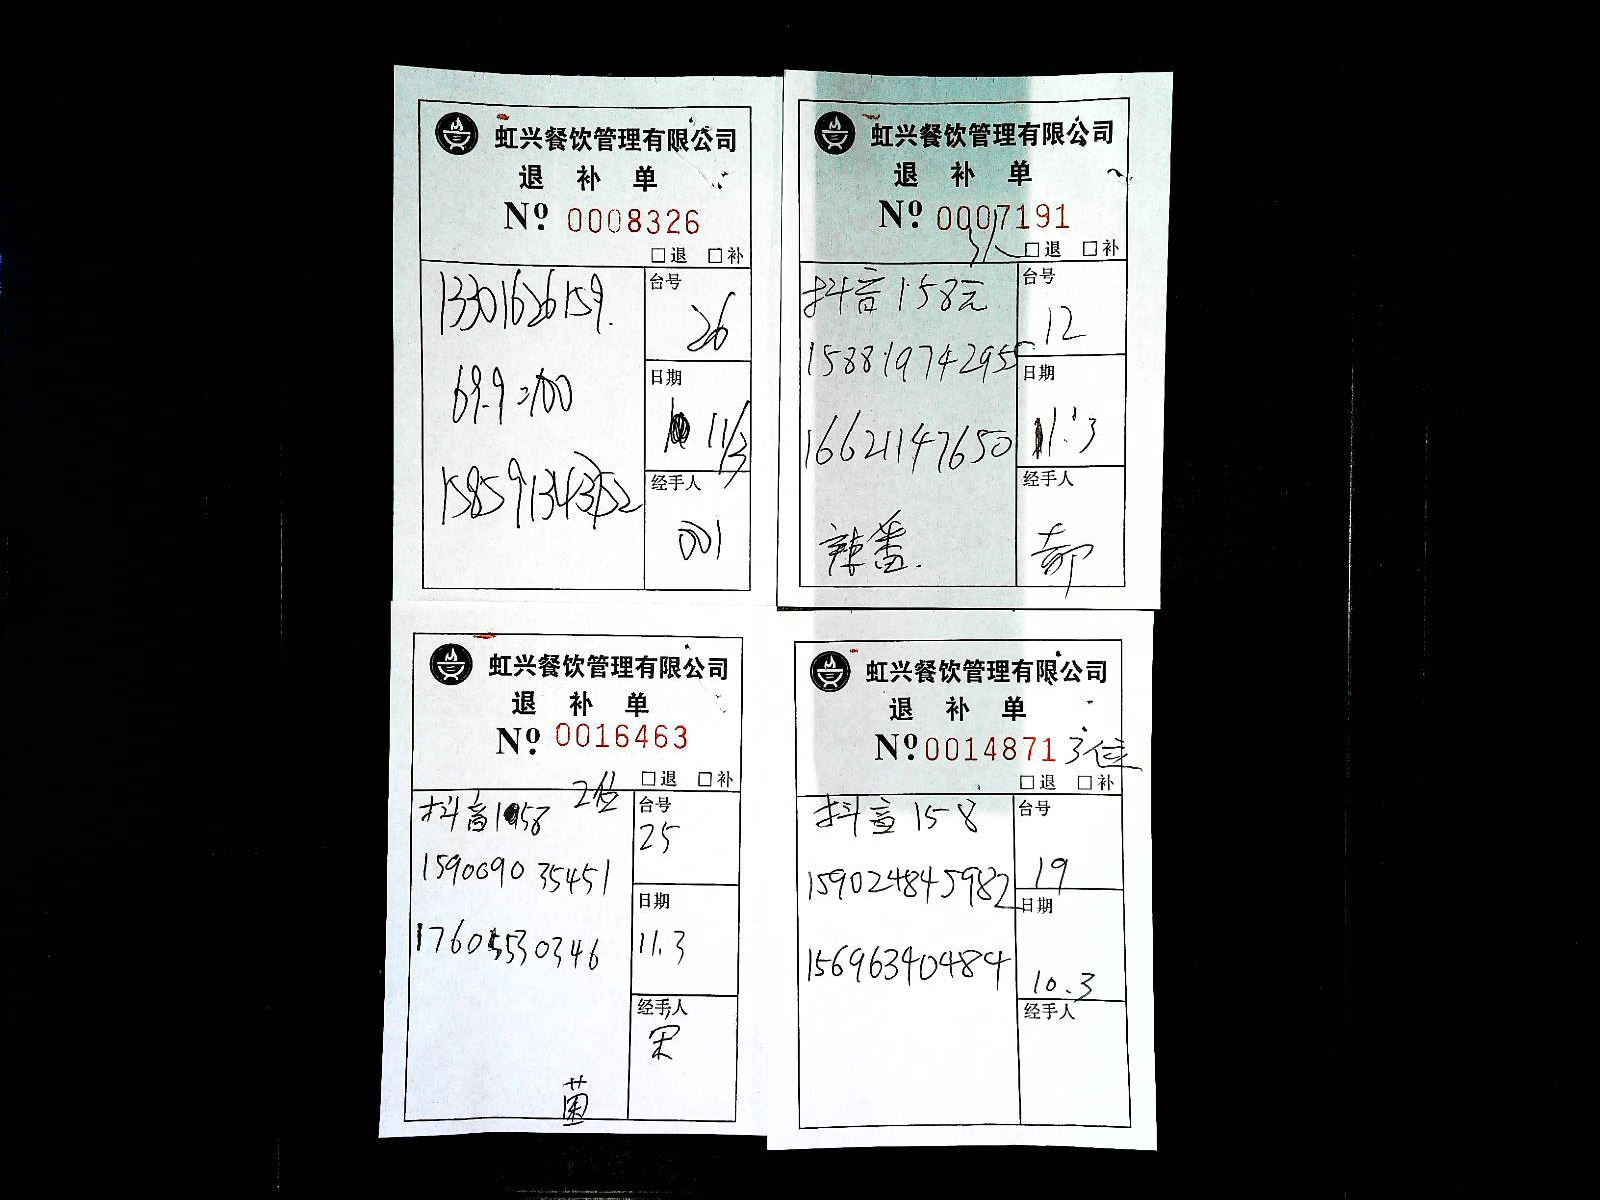 虹兴餐饮管理有限公司
退 补 单
Nº 0008326
□退 □补
13301626159.
台号
26
69.9=100
日期
11/3
158591343752
经手人
001
虹兴餐饮管理有限公司
退 补 单
Nº 0007191
3人
□退 □补
抖音158元
台号
12
158819742955
日期
11.3
16621147650
经手人
辣番.
虹兴餐饮管理有限公司
退 补 单
Nº 0016463
2位
□退 □补
抖音158
台号
25
159009035451
日期
11.3
17605530346
经手人
菌
虹兴餐饮管理有限公司
退 补 单
Nº 0014871 3位
□退 □补
抖音158
台号
19
159024845982
日期
10.3
15696340484
经手人